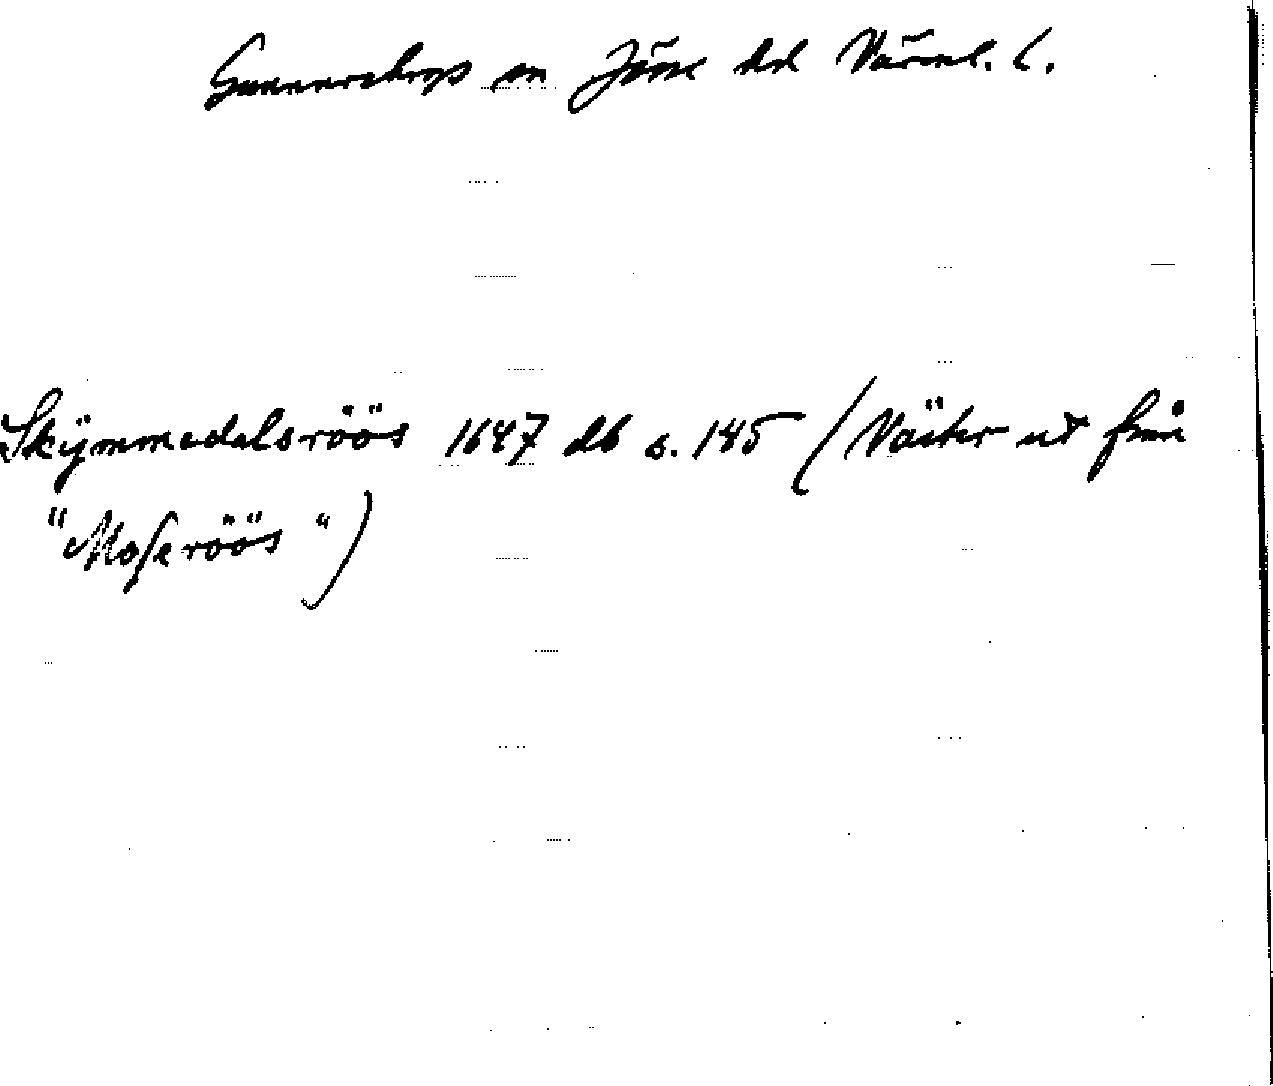 Gunnarskogs sn Jösse hd Värml. l.
Skÿmmedalsröös 1647 db s. 145 (Väster ut från
"Moseröös")